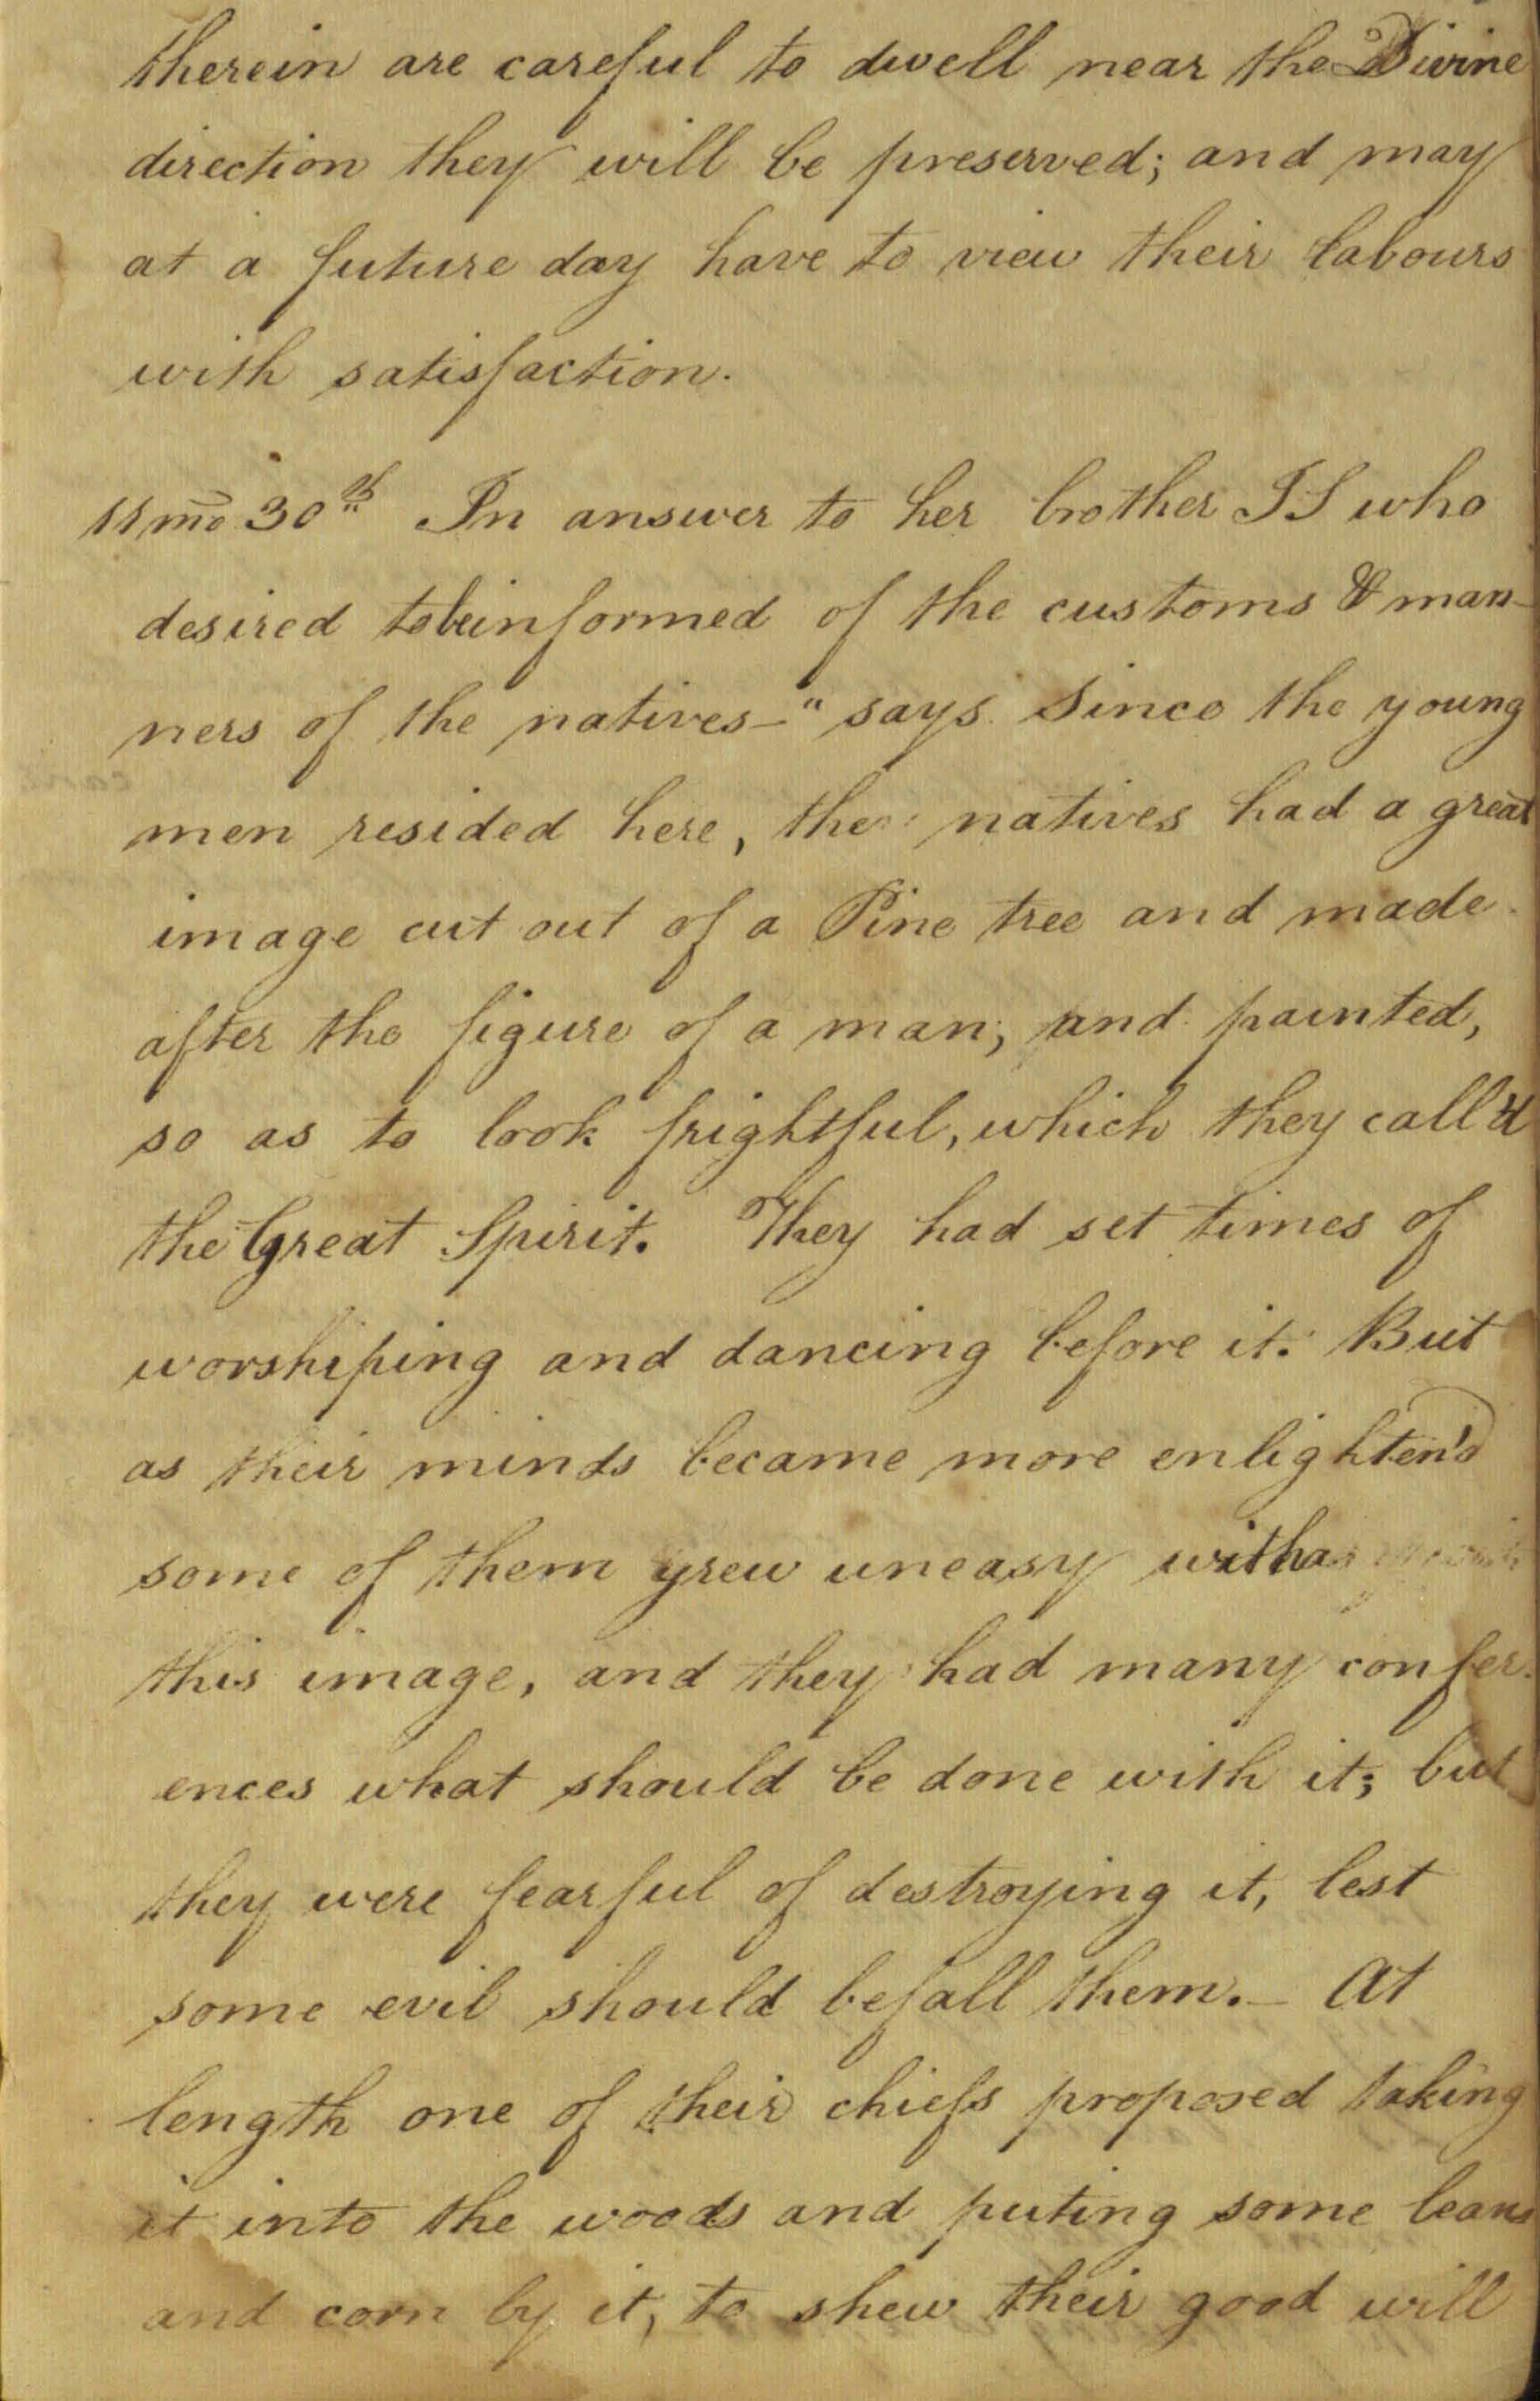 therein are careful to dwell near the Divine
direction they will be preserved; and may
at a future day have to view their labours
with satisfaction.
11mo 30th In answer to her brother IS who
desired to be informed of the customs & man-
ners of the natives—" says Since the young
men resided here, the natives had a great
image cut out of a Pine tree and made
after the figure of a man; and painted,
so as to look frightful, which they call'd
the Great Spirit. They had set times of
worshiping and dancing before it. But
as their minds became more enlighten'd
some of them grew uneasy with
this image, and they had many confer-
ences what should be done with it; but
they were fearful of destroying it, lest
some evil should befall them.— At
length one of their chiefs proposed taking
it into the woods and puting some beans
and corn by it, to shew their good will